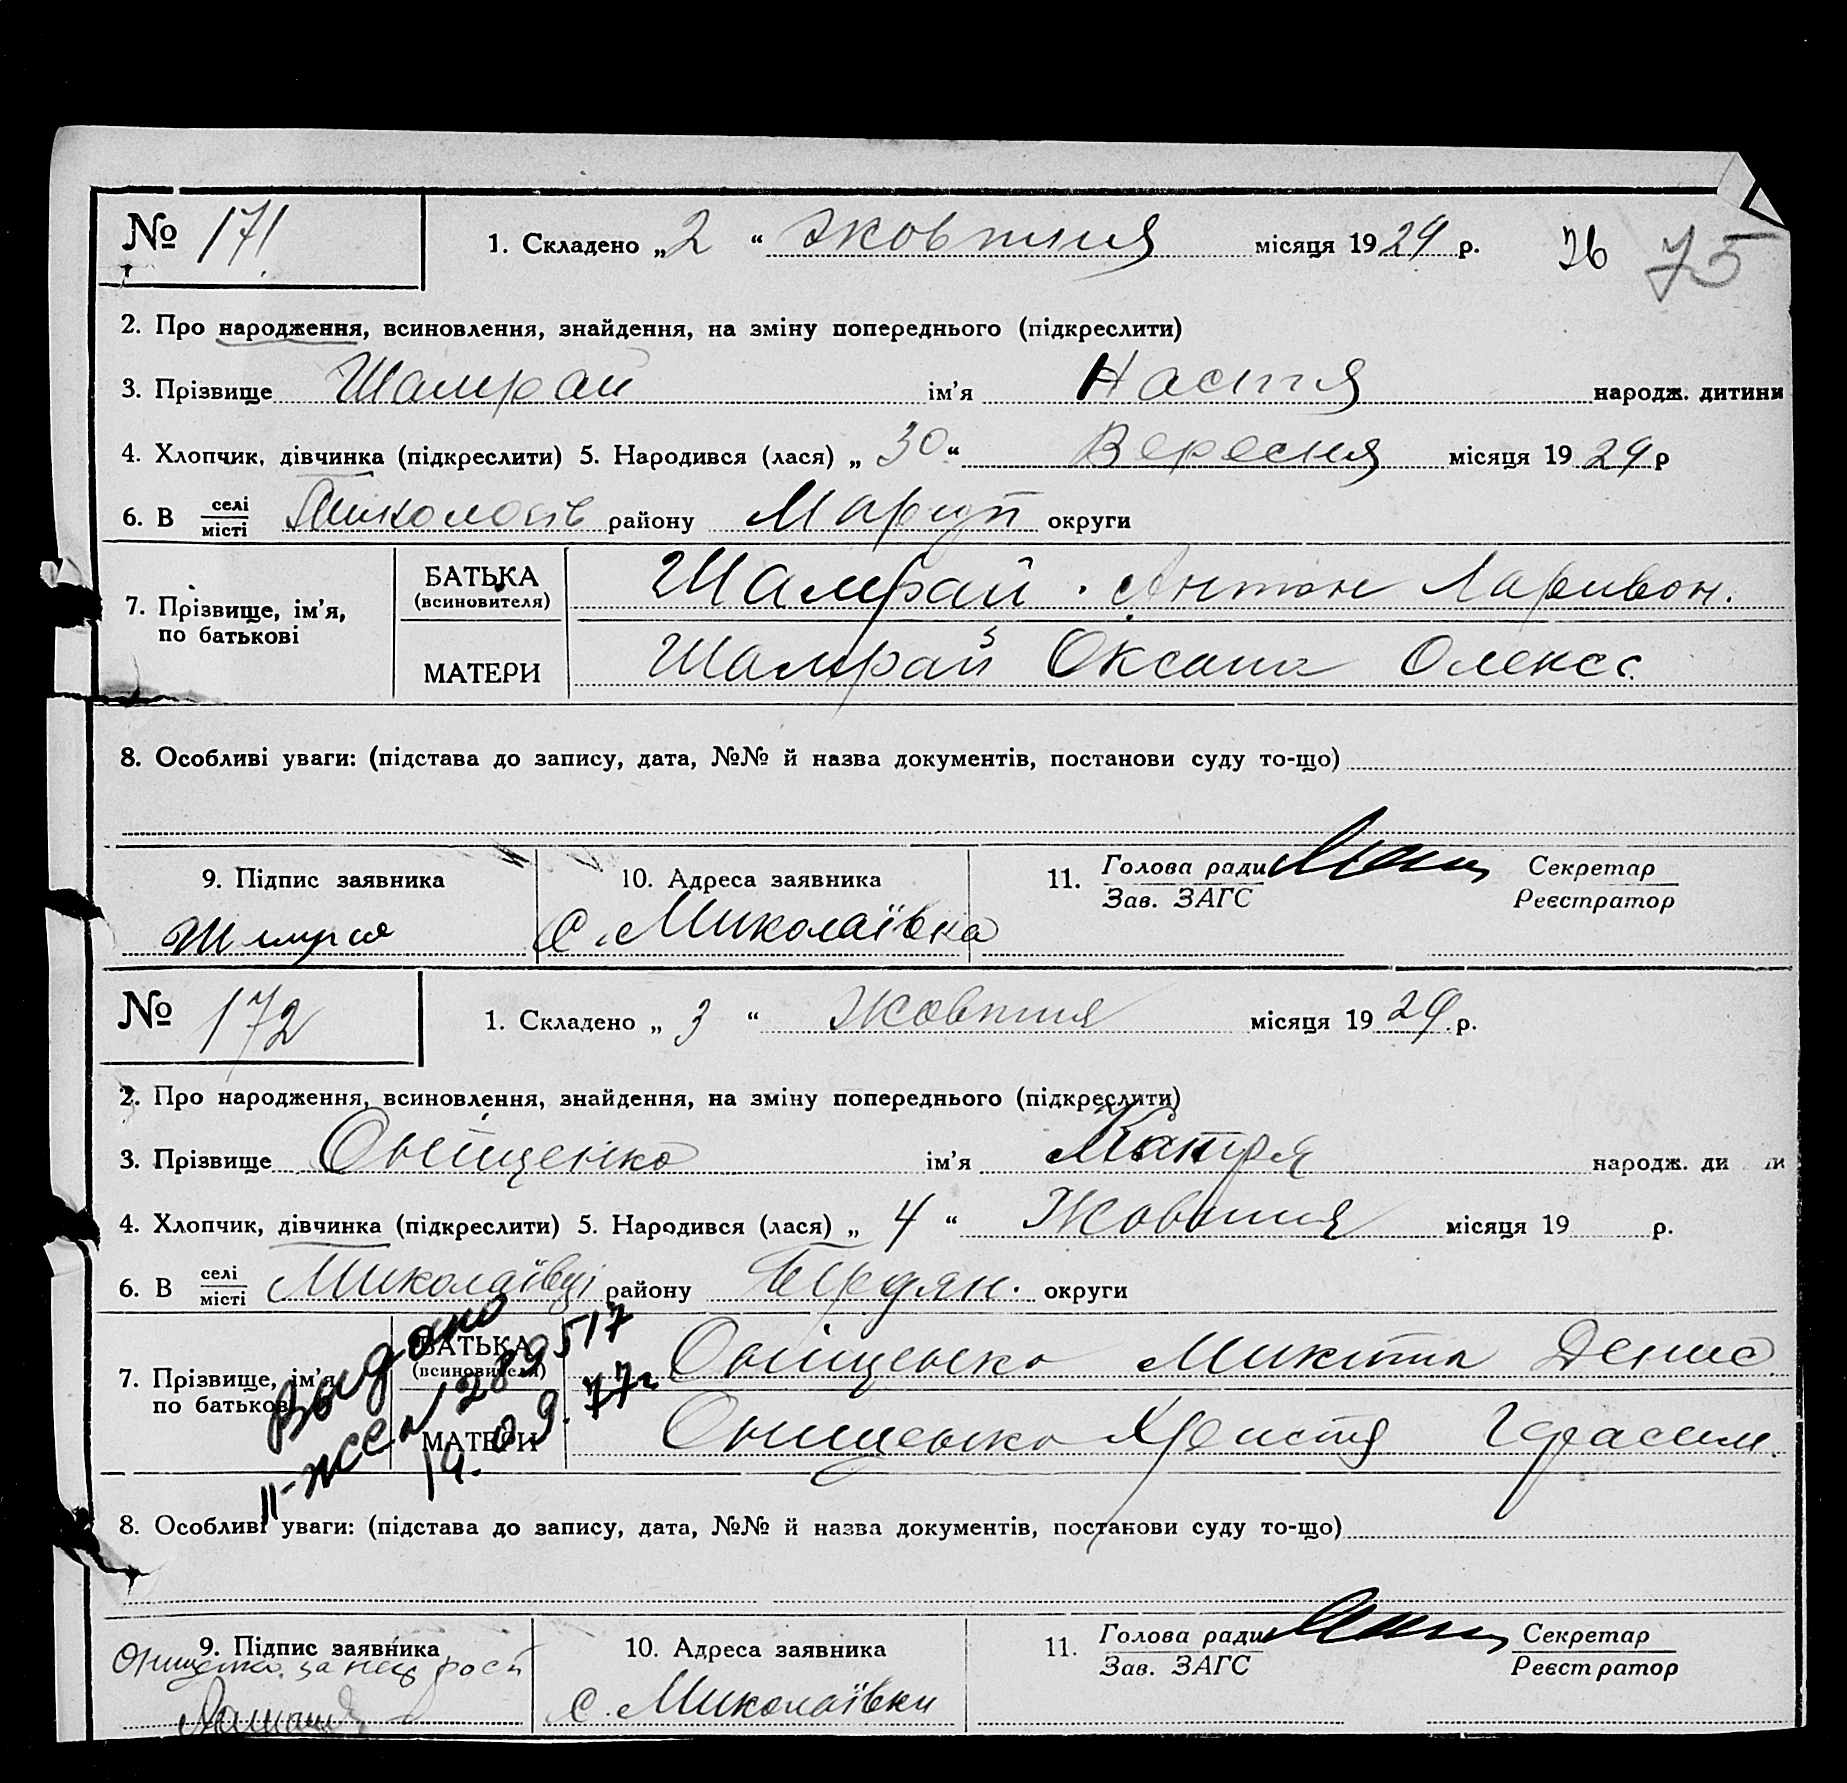 № 171 1. Складено „ 2 “ Жовтня місяця 1929 р. 76 75
2. Про народження, всиновлення, знайдення, на зміну попереднього (підкреслити)
3. Прізвище Шамрай ім'я Настя народж. дитини
4. Хлопчик, дівчинка (підкреслити) 5. Народився (лася) „ 30 “ Вересня місяця 1929 р
6. В селі місті району Маріуп округи
7. Прізвище, ім'я, по батькові
БАТЬКА (всиновителя) Шамрай Антон Ларивон.
МАТЕРИ Шамрай Оксана Олекс.
8. Особливі уваги: (підстава до запису, дата, №№ й назва документів, постанови суду то-що)
9. Підпис заявника 10. Адреса заявника 11. Голова ради Зав. ЗАГС Секретар Реєстратор
с. Миколаївка
№ 172 1. Складено „ 3 “ Жовтня місяця 1929 р.
2. Про народження, всиновлення, знайдення, на зміну попереднього (підкреслити)
3. Прізвище Оніщенко ім'я Катря народж. ди и
4. Хлопчик, дівчинка (підкреслити) 5. Народився (лася) „ 4 “ Жовтня місяця 19 р.
6. В селі місті Миколаївці району Бердян. округи
7. Прізвище, ім'я по батькові
БАТЬКА (всиновителя) Оніщенко Микита Денис
МАТЕРИ Онищенко Христя Герасим.
Выдано
II-ЖС № 289517
19.09.77г
8. Особливі уваги: (підстава до запису, дата, №№ й назва документів, постанови суду то-що)
9. Підпис заявника 10. Адреса заявника 11. Голова ради Зав. ЗАГС Секретар Реєстратор
с. Миколаївки